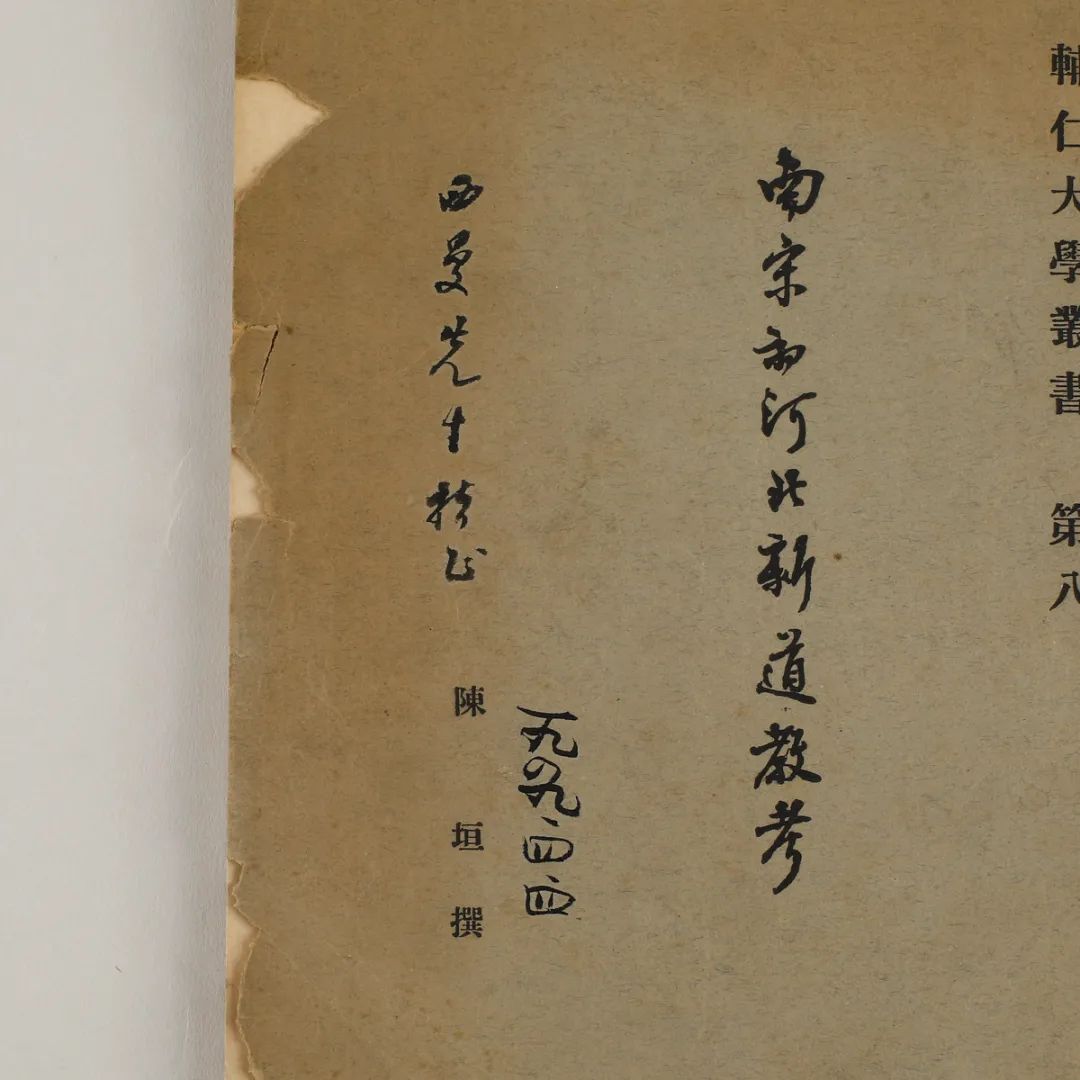 輔仁大學叢書 第八
南宋初河北新道教考
西曼先生指正
陳垣撰